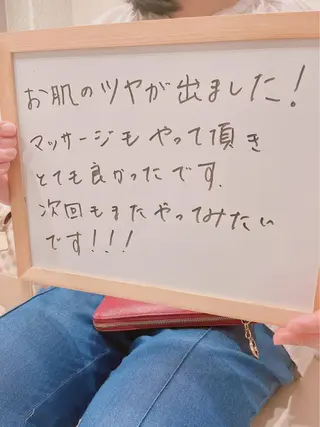 お肌のツヤが出ました!
マッサージもやって頂き
とても良かったです.
次回もまたやってみたい
です!!!